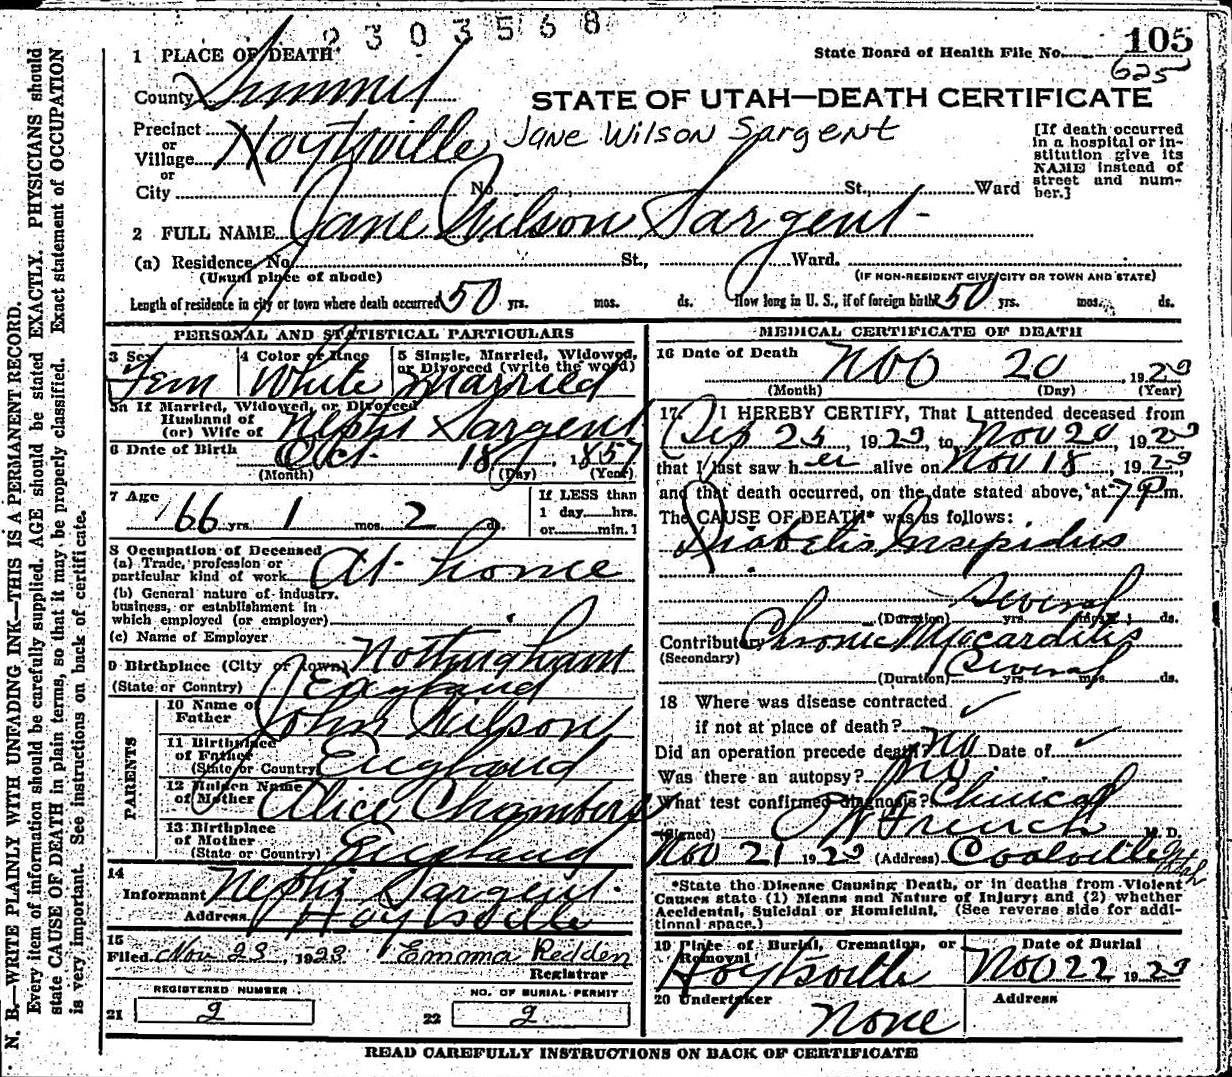 2303568
State Board of Health File No. 105
625
1 PLACE OF DEATH
County Summit
STATE OF UTAH—DEATH CERTIFICATE
Precinct
or
Village Hoytsville
Jane Wilson Sargent
[If death occurred in a hospital or institution give its NAME instead of street and number.]
or
City No. St., Ward
2 FULL NAME Jane Wilson Sargent
(a) Residence No. St., Ward.
(Usual place of abode) (IF NON-RESIDENT GIVE CITY OR TOWN AND STATE)
Length of residence in city or town where death occurred 50 yrs. mos. ds. How long in U. S., if of foreign birth? 50 yrs. mos. ds.
PERSONAL AND STATISTICAL PARTICULARS
3 Sex Fem
4 Color or Race White
5 Single, Married, Widowed, or Divorced (write the word) Married
5a If Married, Widowed, or Divorced
Husband of
(or) Wife of Nephi Sargent
6 Date of Birth Oct 18, 1857
(Month) (Day) (Year)
7 Age 66 yrs. 1 mos. 2 ds.
If LESS than
1 day hrs.
or min.
8 Occupation of Deceased
(a) Trade, profession or
particular kind of work At home
(b) General nature of industry,
business, or establishment in
which employed (or employer)
(c) Name of Employer
9 Birthplace (City or town) Nottingham
(State or Country) England
PARENTS
10 Name of
Father John Wilson
11 Birthplace
of Father
(State or Country) England
12 Maiden Name
of Mother Alice Chambers
13 Birthplace
of Mother
(State or Country) England
14
Informant Nephi Sargent
Address Hoytsville
15
Filed Nov 23, 1923 Emma Redden
Registrar
REGISTERED NUMBER
21 2
NO. OF BURIAL PERMIT
22 2
MEDICAL CERTIFICATE OF DEATH
16 Date of Death Nov 20, 1923
(Month) (Day) (Year)
17. I HEREBY CERTIFY, That I attended deceased from
Sep 25, 1923, to Nov 20, 1923
that I last saw her alive on Nov 18, 1923
and that death occurred, on the date stated above, at 7 P.m.
The CAUSE OF DEATH* was as follows:
Diabetis Insipidus
Several
(Duration) yrs. mos. ds.
Contributory Chronic Myocarditis
(Secondary) Several
(Duration) yrs. mos. ds.
18 Where was disease contracted
if not at place of death? ✓
Did an operation precede death? No Date of ✓
Was there an autopsy? No
What test confirmed diagnosis? Clinical
(Signed) French M. D.
Nov 21 1923 (Address) Coalville Utah
*State the Disease Causing Death, or in deaths from Violent
Causes state (1) Means and Nature of Injury; and (2) whether
Accidental, Suicidal or Homicidal. (See reverse side for addi-
tional space.)
19 Place of Burial, Cremation, or
Removal Hoytsville
Date of Burial
Nov 22, 1923
20 Undertaker None
Address
READ CAREFULLY INSTRUCTIONS ON BACK OF CERTIFICATE
N. B.—WRITE PLAINLY WITH UNFADING INK—THIS IS A PERMANENT RECORD.
Every item of information should be carefully supplied. AGE should be stated EXACTLY. PHYSICIANS should
state CAUSE OF DEATH in plain terms, so that it may be properly classified. Exact statement of OCCUPATION
is very important. See instructions on back of certificate.